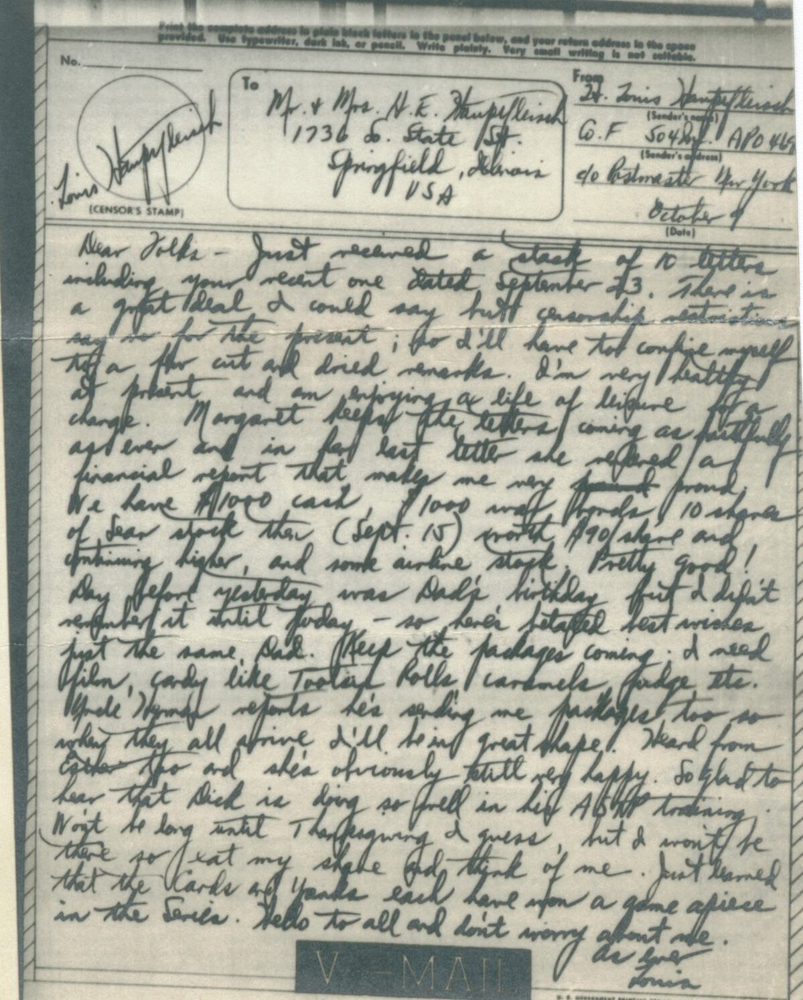 Print the complete address in plain block letters in the panel below, and your return address in the space
provided. Use typewriter, dark ink, or pencil. Write plainly. Very small writing is not suitable.
No.
Louis Haupfleisch
(CENSOR'S STAMP)
To
Mr. & Mrs. H. E. Haupfleisch
1730 So. State St.
Springfield, Illinois
USA
From
Lt. Louis Haupfleisch
(Sender's name)
APO 469
(Sender's address)
c/o Postmaster New York
October 9
(Date)
Dear Folks – Just received a stack of 10 letters
including your recent one dated September 23. There is
a great deal I could say but censorship restrictions
say no for the present; so I'll have to confine myself
to a few cut and dried remarks. I'm very healthy
at present and am enjoying a life of leisure for a
change. Margaret keeps the letters coming as faithfully
as ever and in her last letter she a
financial report that makes me very proud.
We have $1000 cash, $1000 war bonds, 10 shares
of Sear stock then (Sept. 15) worth $90/share and
continuing higher, and some airline stock. Pretty good!
Day before yesterday was Dad's birthday but I didn't
remember it until today – so here's belated best wishes
just the same, Dad. Keep the packages coming. I need
film, candy like Tootsie Rolls caramels, fudge etc.
Uncle reports he's sending me packages too so
when they all arrive I'll be in great shape. Heard from
Esther too and she's obviously still very happy. So glad to
hear that Dick is doing so well in his training.
Won't be long until Thanksgiving I guess, but I won't be
there so eat my share and think of me. Just learned
that the Cards and Yanks each have won a game apiece
in the Series. Hello to all and don't worry about me.
As ever
Louis
V···—MAIL